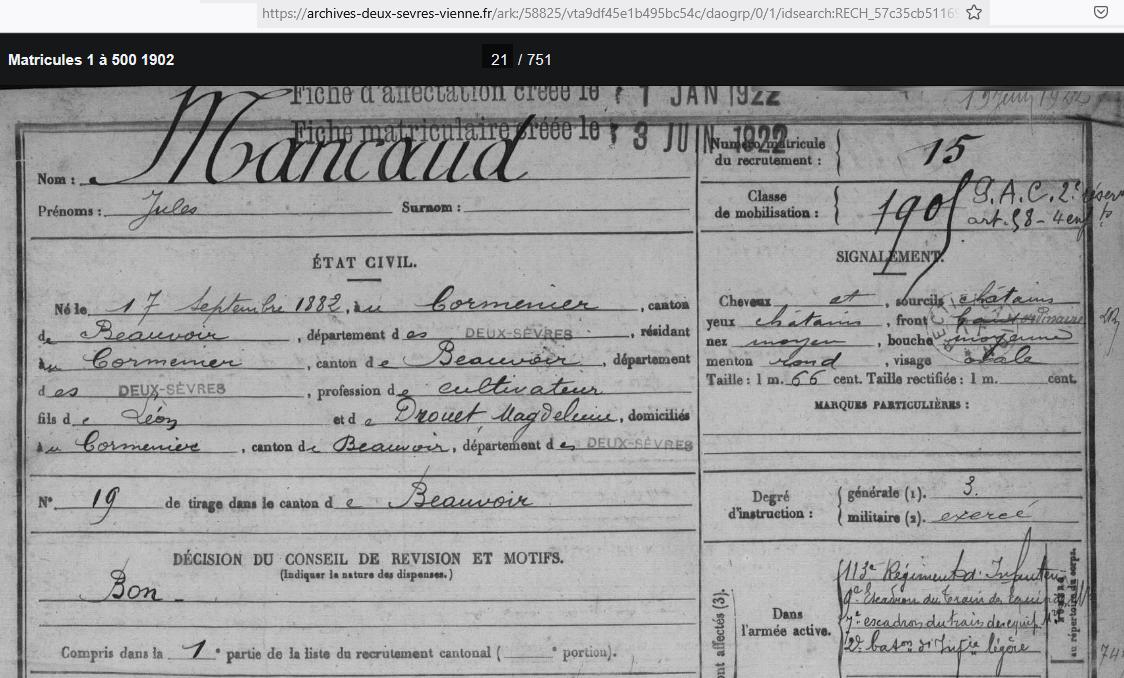 https://archives-deux-sevres-vienne.fr/ark:/58825/vta9df45e1b495bc54c/daogrp/0/1/idsearch:RECH_57c35cb5116
Matricules 1 à 500 1902
21 / 751
Fiche d'affectation créée le 1 JAN 1922
Fiche matriculaire créée le 3 JUIN 1922
Nom : Mancaud
Prénoms : Jules Surnom :
ÉTAT CIVIL.
Né le 17 septembre 1882, au Cormenier, canton
de Beauvoir, département des DEUX-SÈVRES, résidant
au Cormenier, canton de Beauvoir, département
des DEUX-SÈVRES, profession de cultivateur
fils de Léon et de Drouet Magdeleine, domiciliés
au Cormenier, canton de Beauvoir, département des DEUX-SÈVRES
N° 19 de tirage dans le canton de Beauvoir
DÉCISION DU CONSEIL DE REVISION ET MOTIFS.
(Indiquer la nature des dispenses.)
Bon
Compris dans la 1e partie de la liste du recrutement cantonal ( e portion).
Numéro matricule
du recrutement : 15
Classe
de mobilisation : 190
G.A.C. 2e réserve
art. 58 - 4 enfts
SIGNALEMENT.
Cheveux et, sourcils châtains
yeux châtains, front ordinaire
nez moyen, bouche moyenne
menton rond, visage ovale
Taille : 1 m. 66 cent. Taille rectifiée : 1 m. cent.
MARQUES PARTICULIÈRES :
Degré
d'instruction :
générale (1). 3.
militaire (2). exercé
Dans
l'armée active.
113e Régiment d'Infanterie
9e Escadron du train des équip
7e escadron du train des équip
2e baton d'Infie légère
au répertoire du corps.